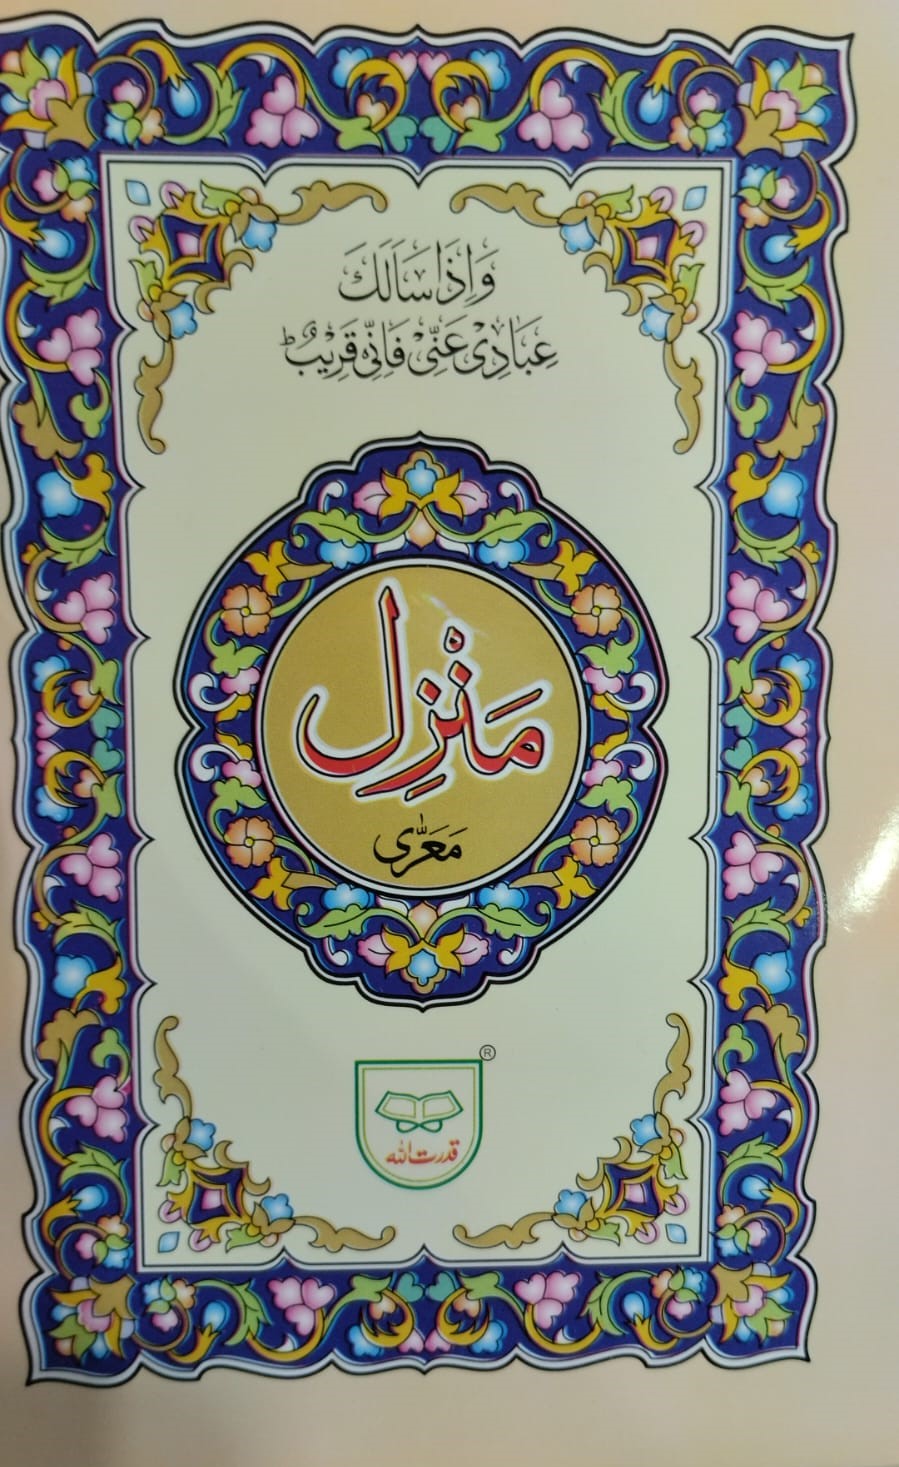 وَاِذَا سَاَلَكَ
عِبَادِیْ عَنِّیْ فَاِنِّیْ قَرِیْبٌ ؕ
مَنْزِل
مَعَرّٰی
®
قدرت الله